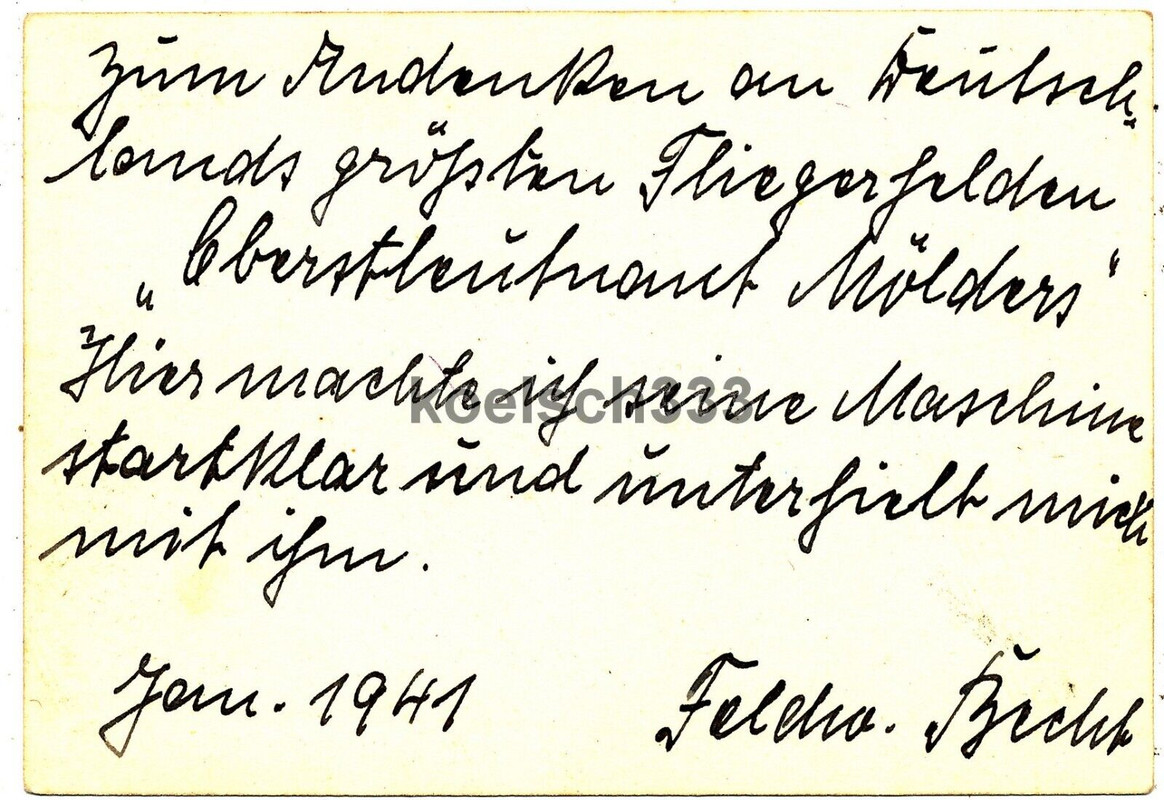 Zum Andenken an Deutsch-
lands größten Fliegerhelden
„Oberstleutnant Mölders"
Hier machte ich seine Maschine
koelsch333
startklar und unterhielt mich
mit ihm.
Jan. 1941 Feldw. Becht